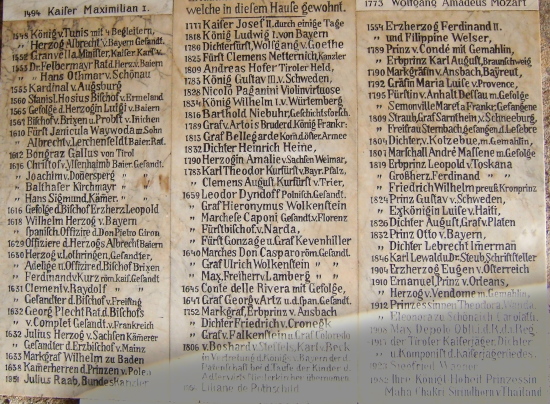 1494 Kaiser Maximilian I.
1545 König v. Tunis mit 4 Begleitern,
" Herzog Albrecht v. Bayern Gesandt.
1552 Granvella, Minister, Kaiser Karl V.
1555 Dr. Felbermayr Rat d. Herz. v. Baiern
" Hans Othmar v. Schönau
1555 Kardinal v. Augsburg
1560 Stanisl. Hosius Bischof v. Ermeland
1565 Gefolge d. Herzogin Luigi v. Baiern
1561 Bischof v. Brixen u. Probst v. Inichen
1610 Fürst Janicula Waywoda m. Sohn
" Albrecht v. Lerchenfeld Baier. Rat.
1612 Bongraz Gallus von Tirol
1616 Christof v. Ullenhaim Baier. Gesandt.
" Joachim v. Donersperg
" Balthaser Kirchmayr
" Hans Sigmund Kämer
1616 Gefolge d. Bischof Erzherz. Leopold
1618 Wilhelm Herzog v. Bayern
" Spanisch. Offizire d. Don Pietro Giron
1629 Offiziere d. Herzogs Albrecht Baiern
1630 Herzog v. Lothringen, Gesandter,
" Adelige u. Offizire d. Bischof Brixen
" Ferdinand v. Kurz röm. kais. Gesandt.
1631 Clement v. Raydolf " "
" Gesandter d. Bischof v. Freising
1632 Georg Plecht Rat d. Bischofs
" v. Complet Gesandt. v. Frankreich
1632 Julius Herzog v. Sachsen Kämerer
" Gesandter d. Erzbischof v. Mainz
1633 Markgraf Wilhelm zu Baden
1638 Kamerherren d. Prinzen v. Polen
1951 Julius Raab, Bundeskanzler
welche in diesem Hause gewohnt.
1777 Kaiser Josef II. durch einige Tage
1818 König Ludwig I. von Bayern
1786 Dichterfürst, Wolfgang v. Goethe
1825 Fürst Clemens Metternich, Kanzler
1809 Andreas Hofer Tiroler Held,
1785 König Gustav III. v. Schweden,
1828 Nicolo Paganini Violinvirtuose
1834 König Wilhelm I. v. Würtemberg
1816 Barthold Niebuhr, Geschichtsforsch.
1789 Graf v. Artois Bruder d. König Frankr:
1815 Graf Bellegarde Kom. d. öster. Armee
1832 Dichter Heinrich Heine,
1790 Herzogin Amalie v. Sachsen Weimar,
1783 Karl Theodor Kurfürst v. Bayr. Pfalz,
" Clemens August, Kurfürst v. Trier,
1659 Leodor Dyndoff Polnisch. Gesandt.
" Graf Hieronymus Wolkenstein
" Marchese Caponi Gesandt. v. Florenz
" Fürstbischof v. Narda,
" Fürst Gonzage u. Graf Kevenhiller
1640 Marches Don Casparo röm. Gesandt.
" Graf Ulrich Wolkenstein "
" Max, Freiherr v. Lamberg " "
1645 Conte delle Rivera mit Gefolge,
1641 Graf Georg v. Artz u. d. span. Gesandt.
1752 Markgraf, Erbprinz v. Ansbach
" Dichter Friedrich v. Cronegk
" Graf v. Falkenstein
1806 v. Boshard
in Vertretung d. König v. Bayern der d.
Patenschaft bei d. Taufe der Kinder d.
Adlerwirts Niederkircher übernommen
1773 Wolfgang Amadeus Mozart
1554 Erzherzog Ferdinand II.
und Filippine Welser,
1789 Prinz v. Condé mit Gemahlin,
" Erbprinz Karl August, Braunschweig
1790 Markgräfin v. Ansbach, Bayreut,
1792 Gräfin Maria Luise v. Provence,
1795 Fürstin v. Anhalt Dessau m. Gefolge
" Semonville Maret a. Frankr: Gefangene
1809 Straub, Graf Sarnthein, v. Schneeburg,
" Freifrau Sternbach, gefangen. d. Lefebre
1804 Dichter, v. Kotzebue, m. Gemahlin,
1801 Marschall André Massene m. Gefolge
1819 Erbprinz Leopold v. Toskana
" Großherz. Ferdinand " "
" Friedrich Wilhelm preuß. Kronprinz
1824 Prinz Gustav v. Schweden,
" Exkönigin Luise v. Haiti,
1826 Dichter August, Graf v. Platen
1832 Prinz Otto v. Bayern,
" Dichter Lebrecht Imerman
1846 Karl Lewald u. Dr. Steub, Schriftsteller
1904 Erzherzog Eugen v. Österreich
1910 Emanuel, Prinz v. Orleans,
" Herzog v. Vendome m. Gemahlin,
1912 Prinzessinnen Theodora
" Eleonora zu Schönaich Carolath
1908 Max Depolo
1911 der Tiroler Kaiserjäger, Dichter
u. Komponist d. Kaiserjägerliedes.
1923 Siegfried Wagner
1952 Ihre Königl. Hoheit Prinzessin
Maha Chakri Sirindhorn v. Thailand